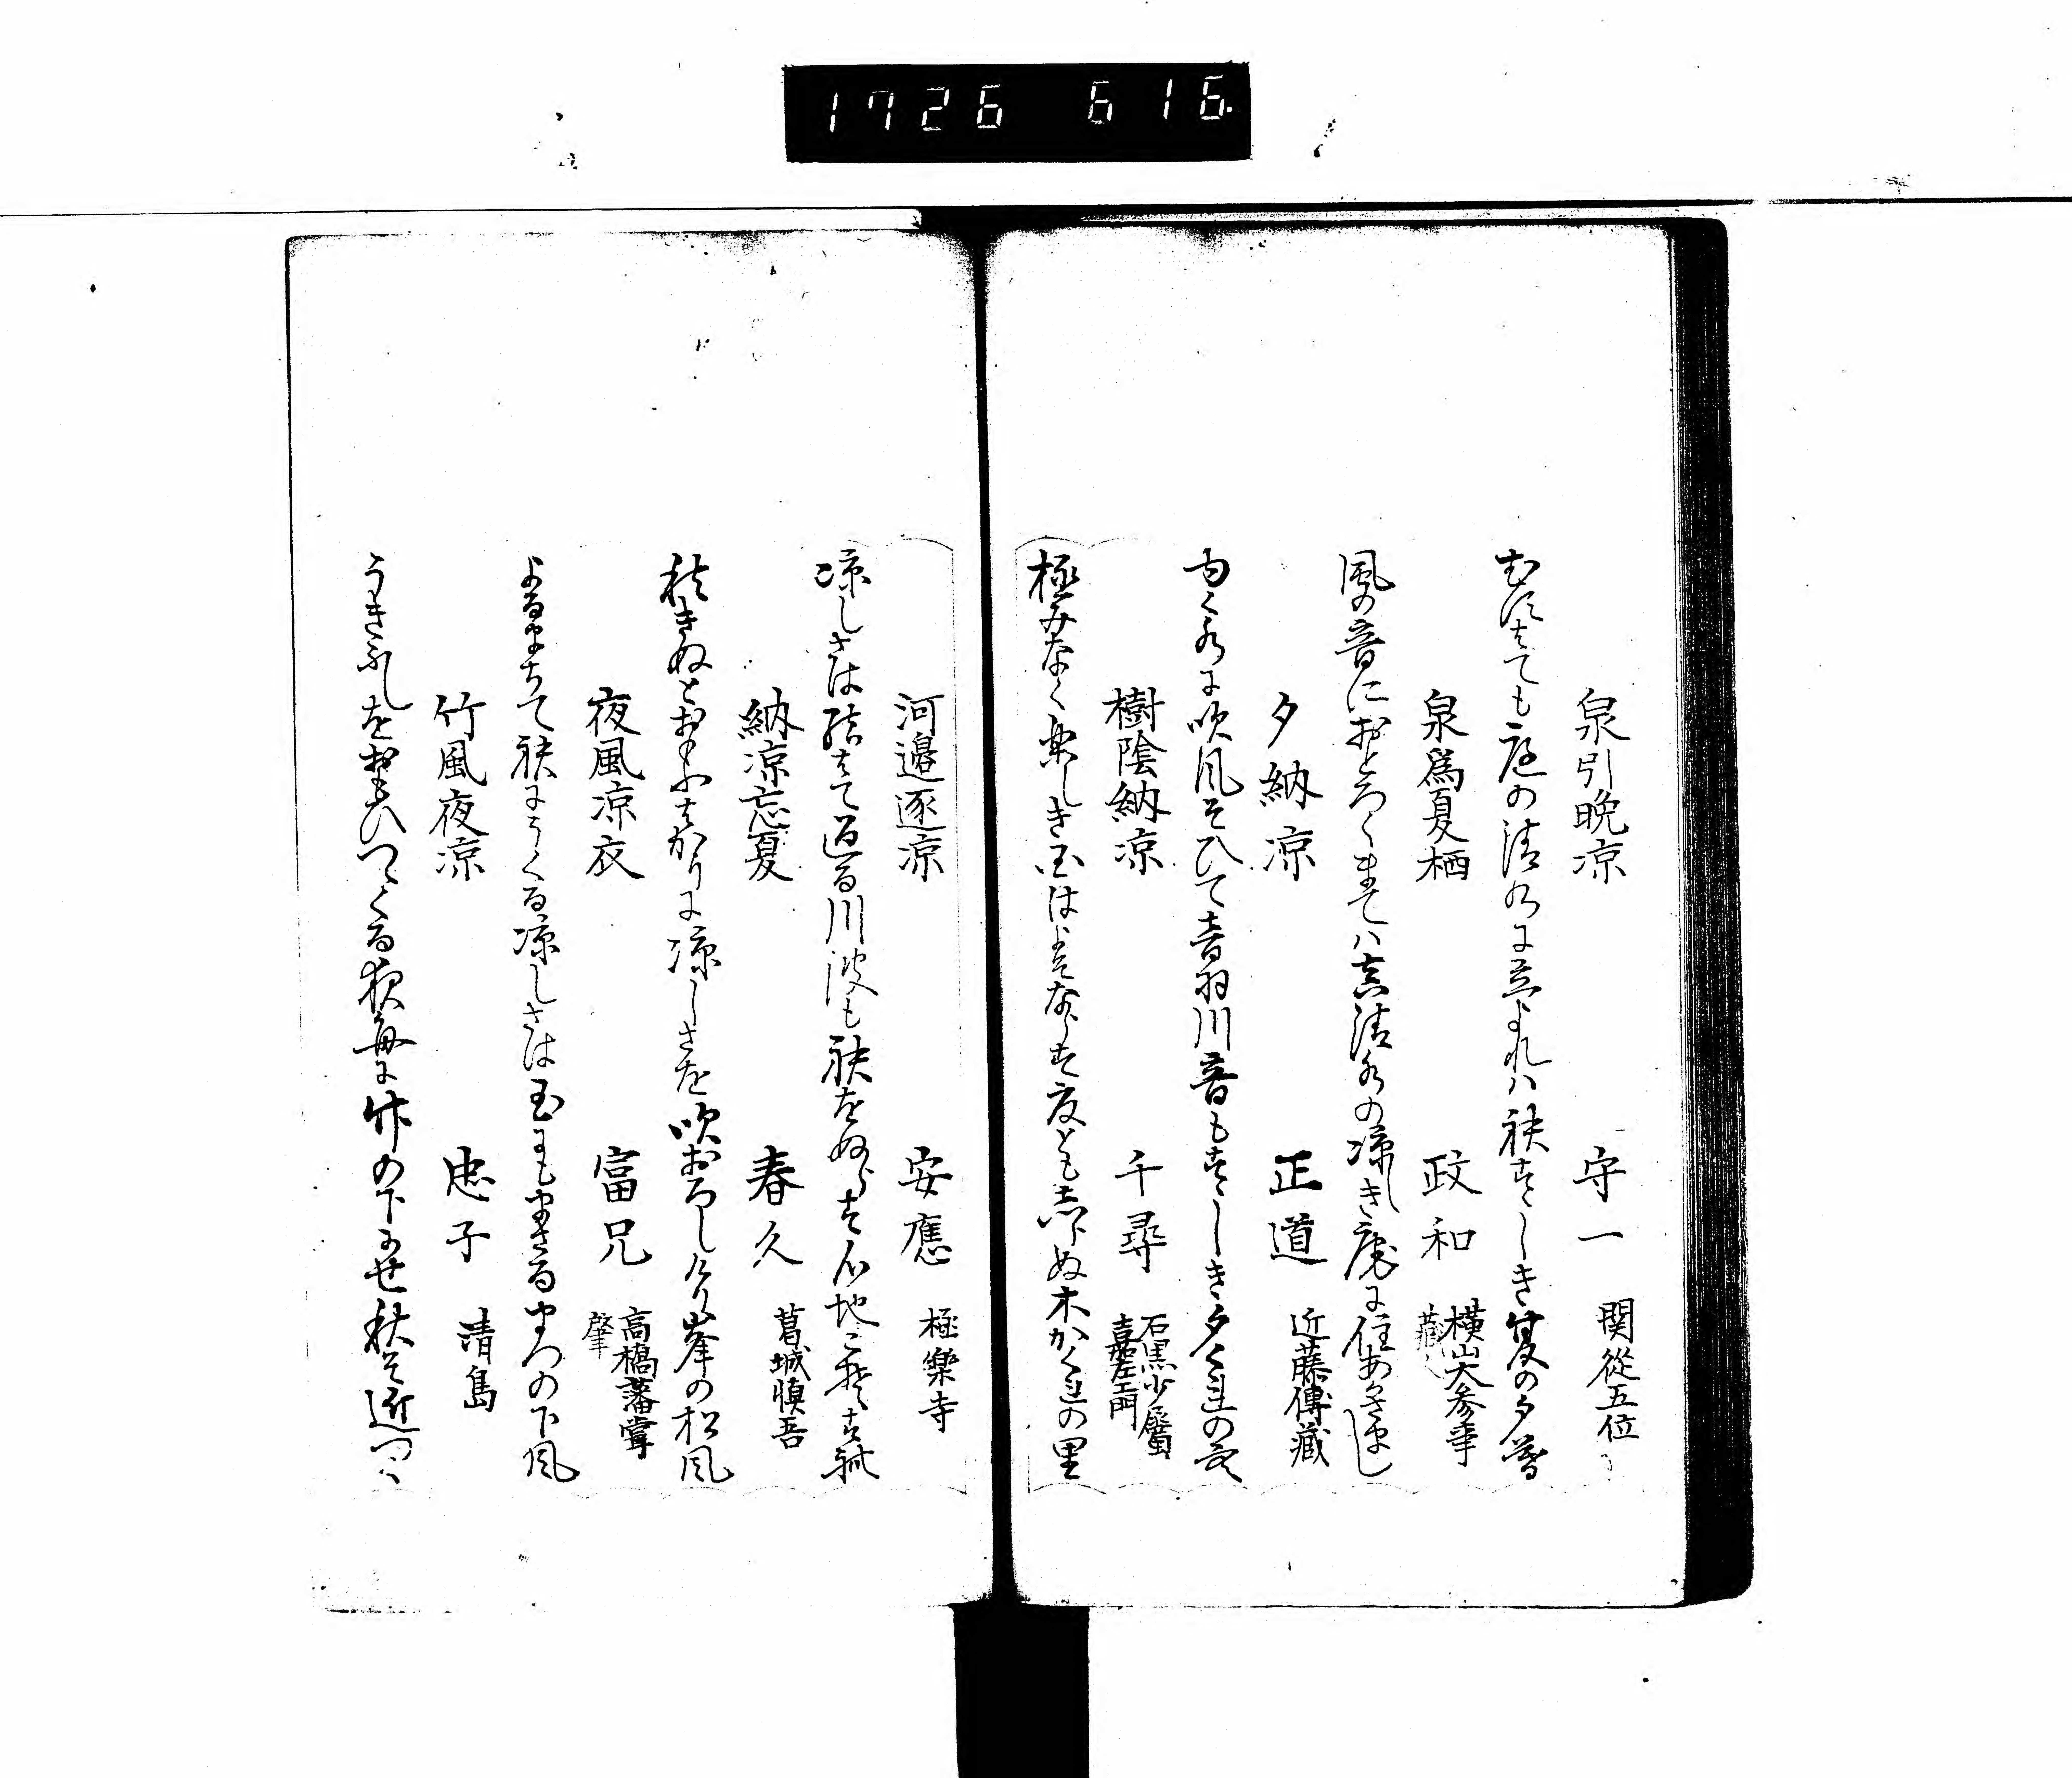 1726 616
泉引晩凉 守一 関從五位
むすはても庭の清水に立よれは袂すゝしき夏の夕暮
泉爲夏栖 政和 横山大参事
風の音におとろくまては真清水の凉しき庵に住あかさまし
夕納凉 正道 近藤傳藏
ゆく水に吹風そひて音羽川音もすゝしき夕くれの空
樹陰納凉 千尋 石黒少属 嘉左エ門
極みなく楽しき国はよそならす夏とも志らぬ木かくれの里
河邉逐凉 安應 極樂寺
凉しさは結はて過る川波も袂をぬらす心地こそすれ
納凉忘夏 春久 葛城慎吾
秋きぬとおもふはかりに凉しさを吹おろしけり峯の松風
夜風凉衣 富兄 高橋藩掌 肇
よるまちて袂にうくる凉しさは玉にもまさるまつの下風
竹風夜凉 忠子 清島
うきふしをおもひつくる夜毎に竹の下かせ秋そ近つく